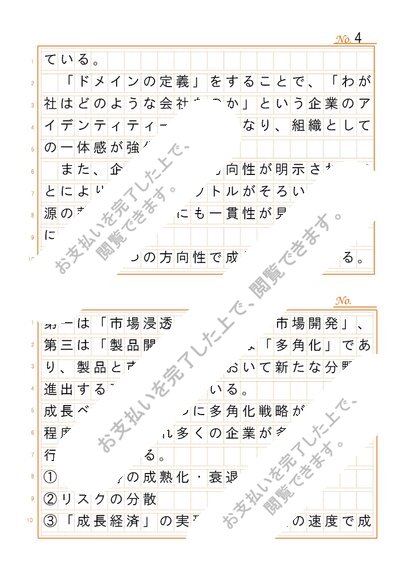 No. 4
ている。
「ドメインの定義」をすることで、「わが
社はどのような会社なのか」という企業のア
イデンティティー なり、組織として
の一体感が強
また、企 方向性が明示され
とにより トルがそろい
源の にも一貫性が見
に
つの方向性で成 る。
お支払いを完了した上で、
閲覧できます。
お支払いを完了した上で、閲覧できます。
No.
第一は「市場浸透 市場開発」、
第三は「製品開 「多角化」であ
り、製品と市 おいて新たな分野
進出する いる。
成長ベ つに多角化戦略が
程度 れ多くの企業が多
行 る。
① の成熟化・衰退
②リスクの分散
③「成長経済」の実 の速度で成
お支払いを完了した上で、
閲覧できます。